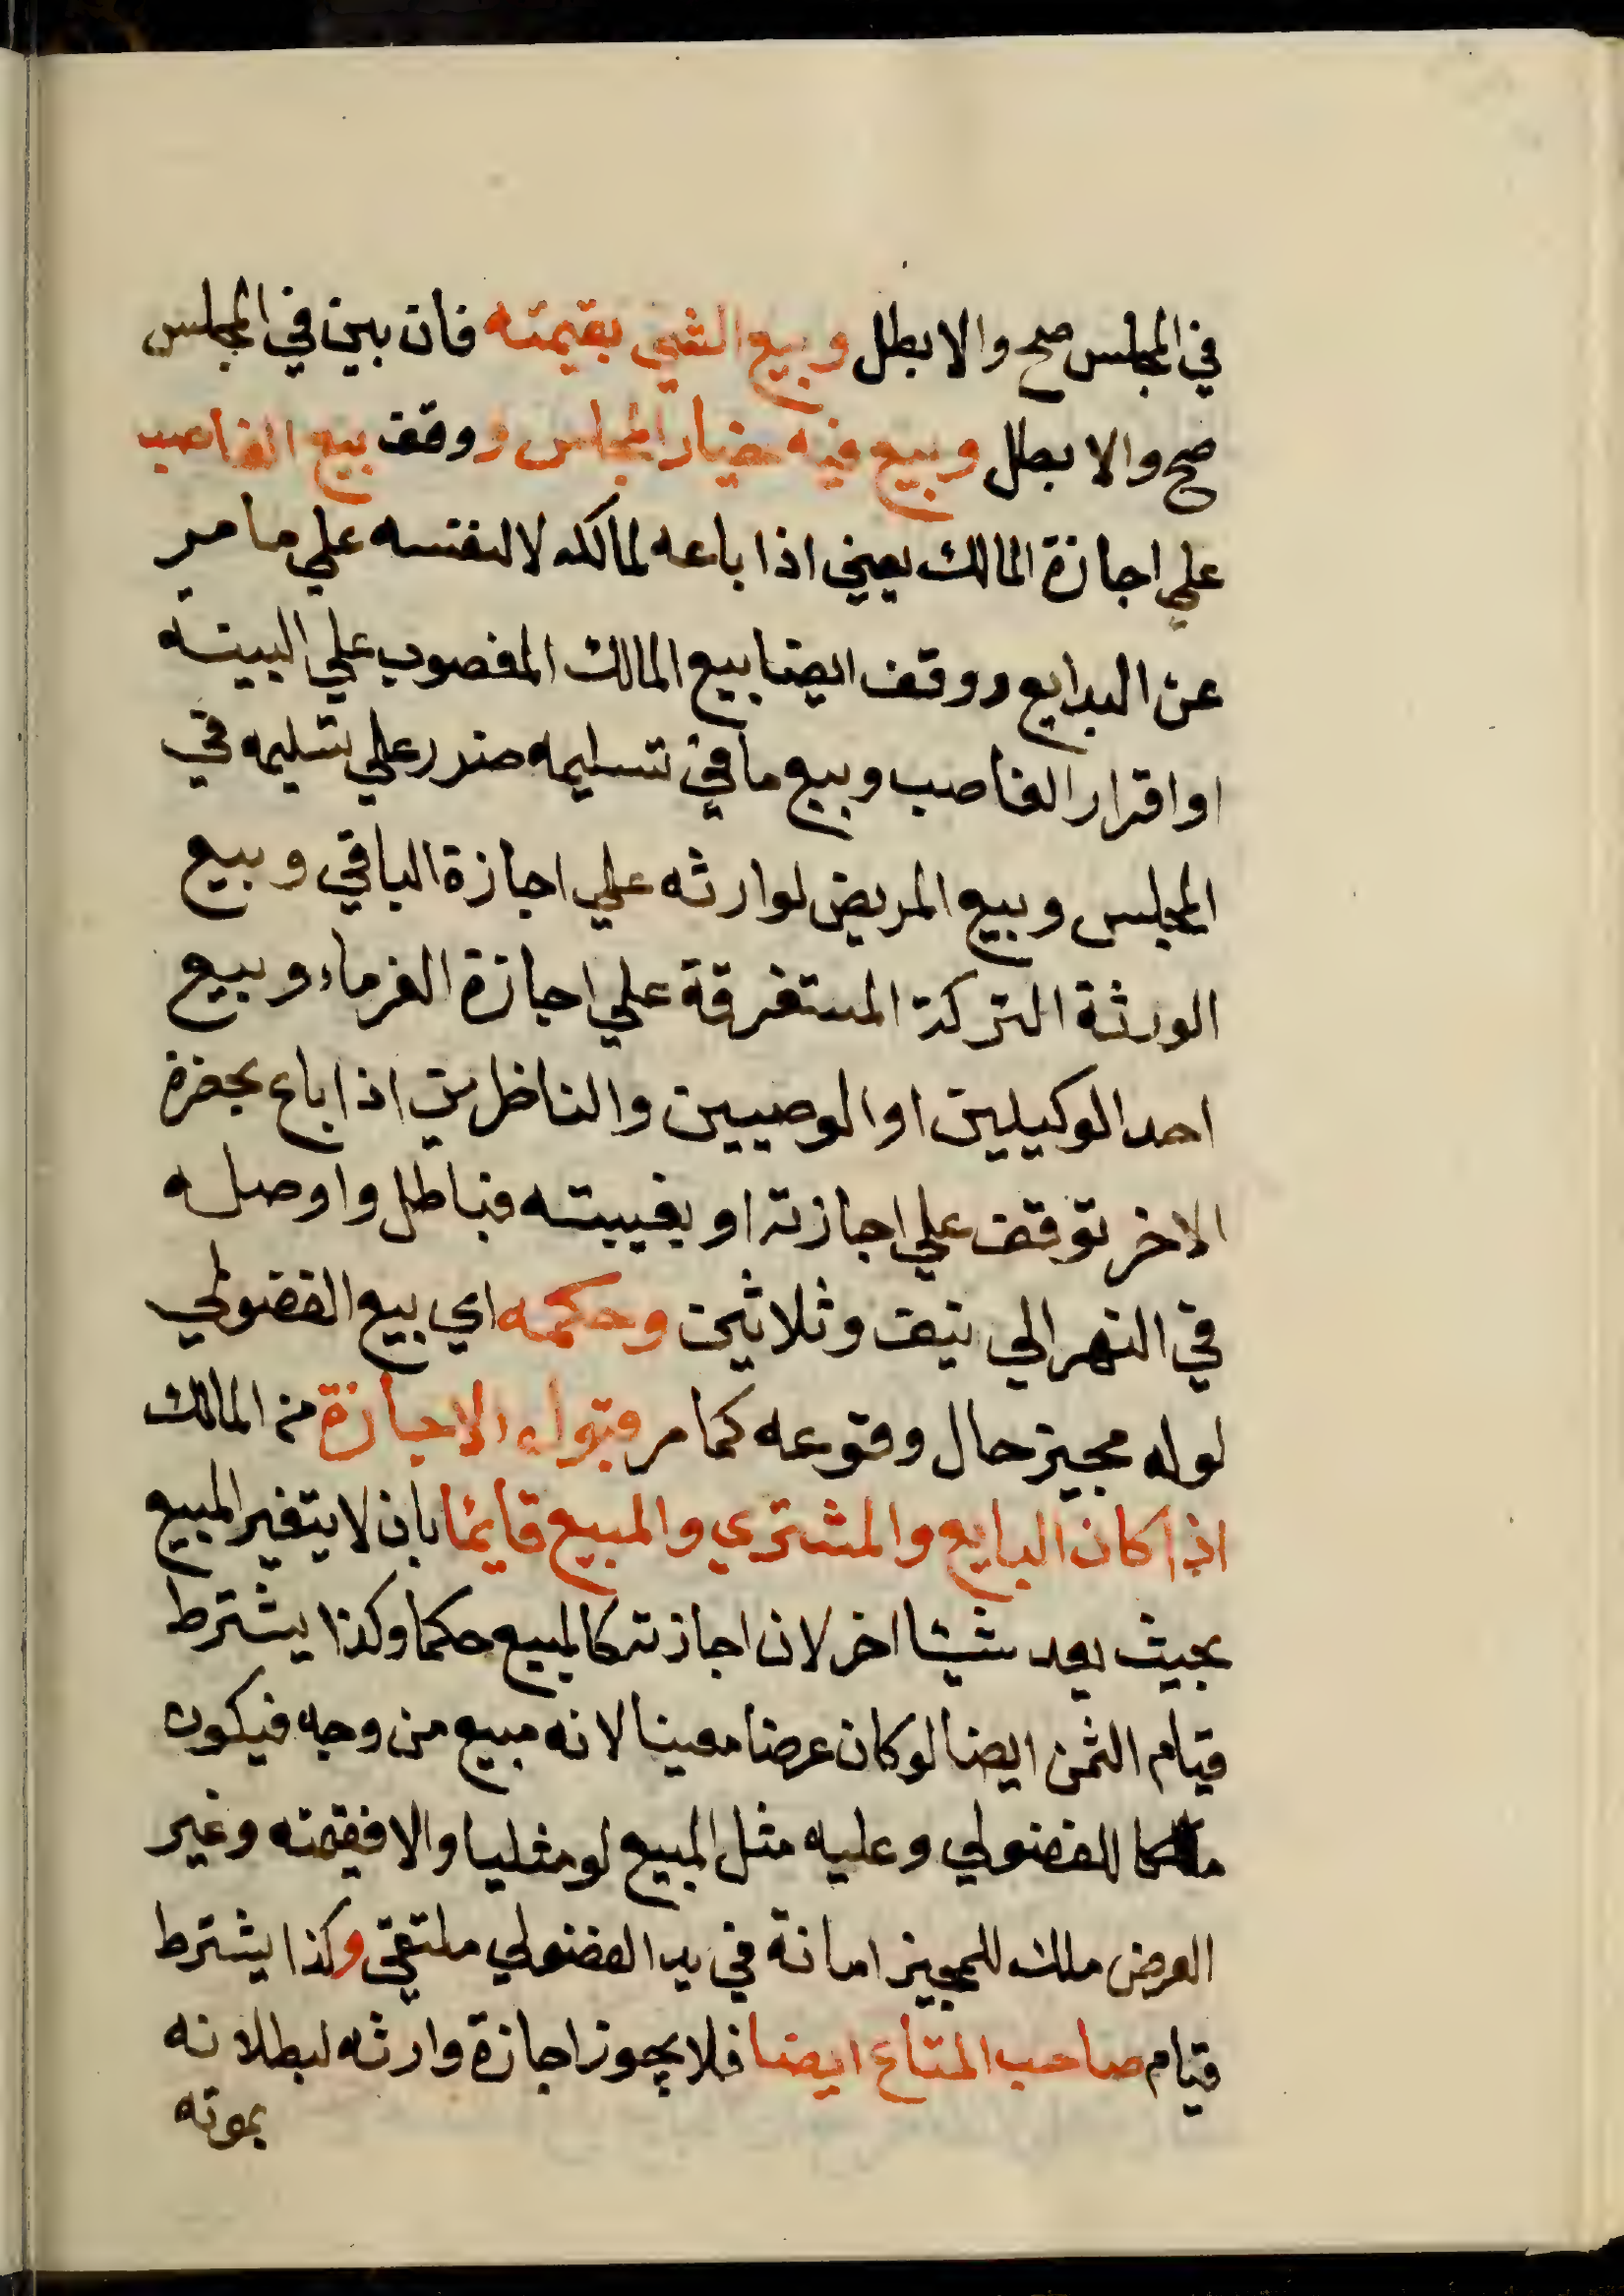 في المجلس صح والا بطل وبيع الشي بقيمته فان بين في المجلس
صح والا بطل وبيع فيه خيار المجلس ووقف بيع الغاصب
علي اجازة المالك يعني اذا باعه لمالكه لا لنفسه علي ما مر
عن البدايع ووقف ايضا بيع المالك المغصوب علي البينة
او اقرار الغاصب وبيع ما في تسليمه ضرر علي تسليمه في
المجلس وبيع المريض لوارثه علي اجازة الباقي وبيع
الورثة التركة المستغرقة علي اجازة الغرماء وبيع
احد الوكيلين او الوصيين والناظرين اذا باع بحضرة
الاخر توقف علي اجازته او بغيبته فباطل واوصله
في النهر الي نيف وثلاثين وحكمه اي بيع الفضولي
لو له مجيز حال وقوعه كما مر قبول الاجازة من المالك
اذا كان البايع والمشتري والمبيع قايما بان لا يتغير المبيع
بحيث يعد شيئا اخر لان اجازته كالبيع حكما وكذا يشترط
قيام الثمن ايضا لو كان عرضا معينا لانه مبيع من وجه فيكون
ملكا للفضولي وعليه مثل المبيع لو مثليا والا فقيمته وغير
العرض ملك للمجيز امانة في يد الفضولي ملتقي وكذا يشترط
قيام صاحب المتاع ايضا فلا يجوز اجازة وارثه لبطلانه
بموته